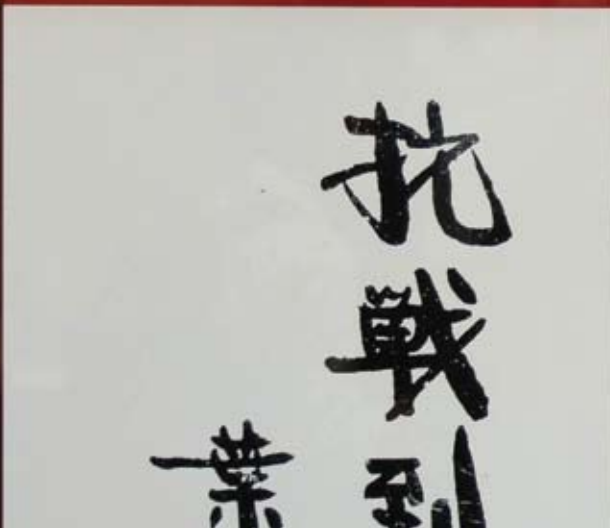 抗戰到
葉